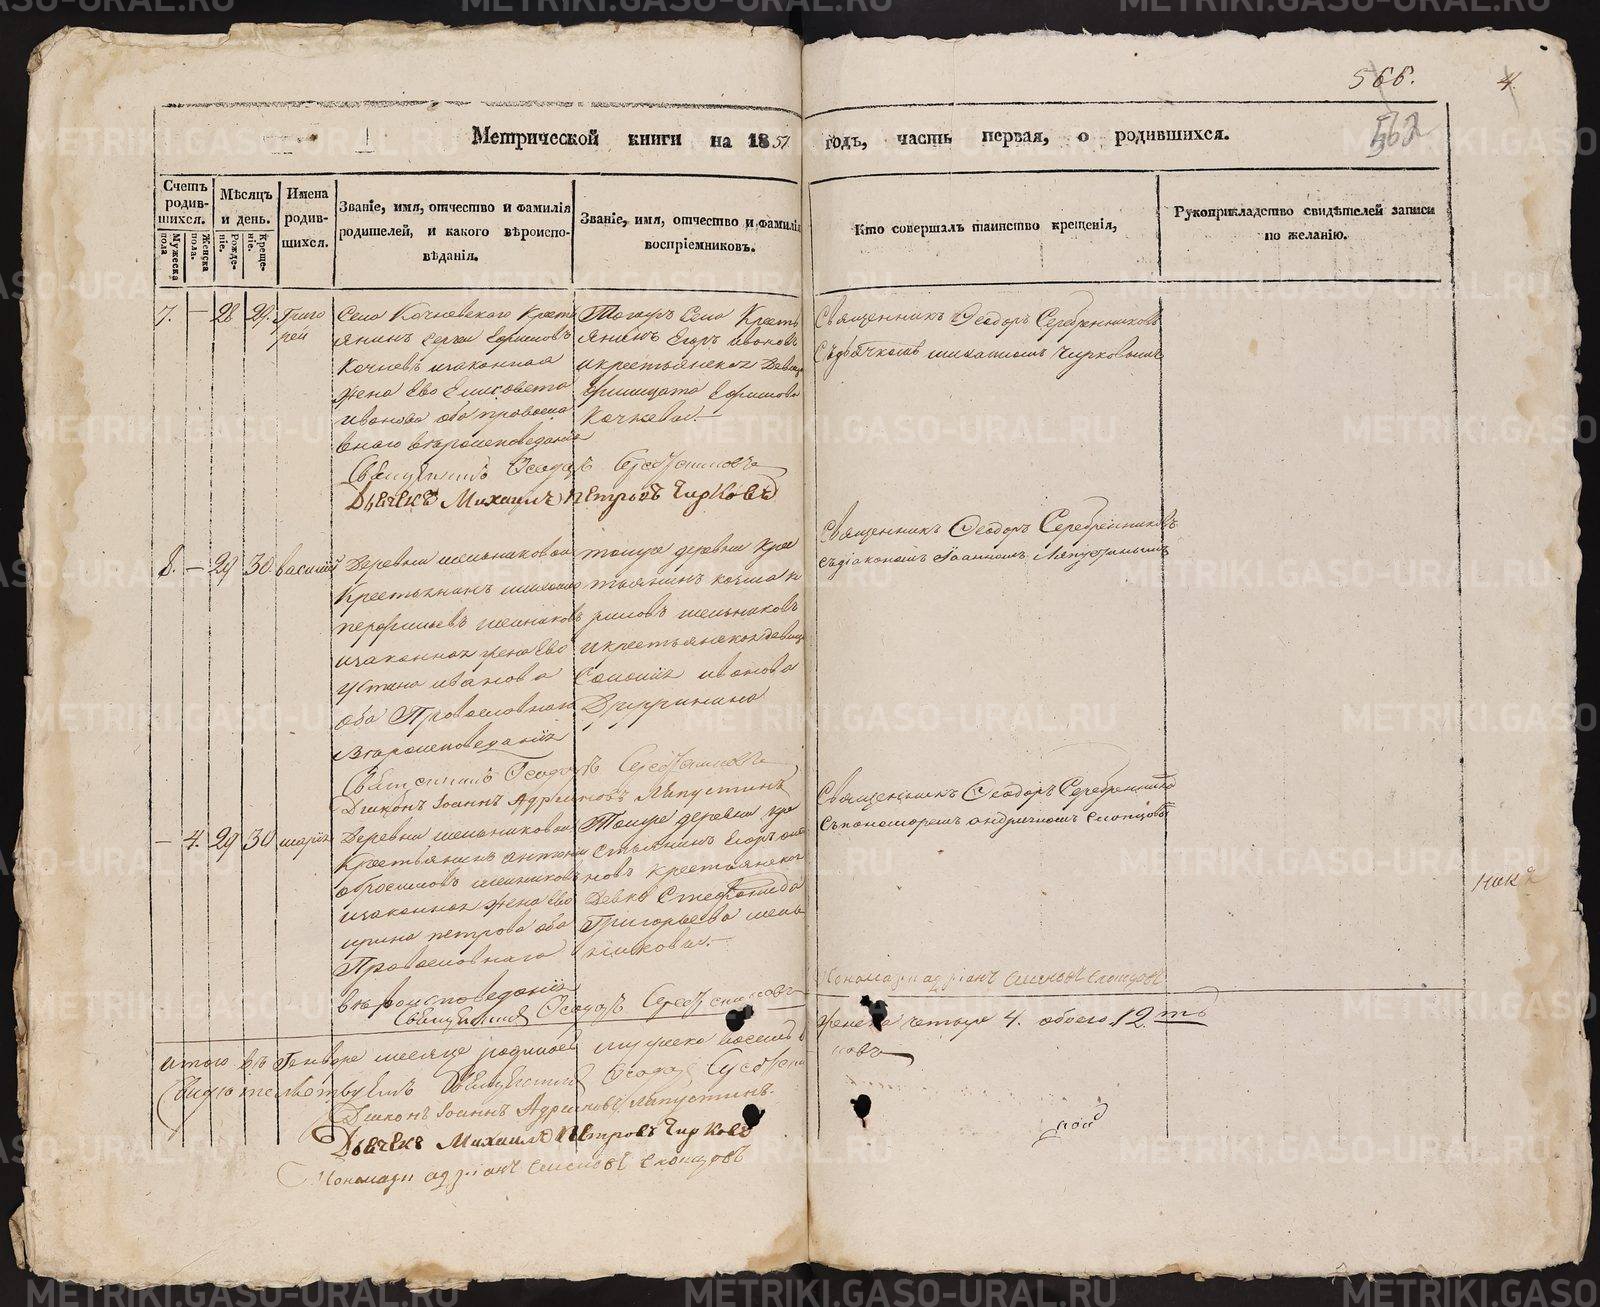 566.
4
562
Метрической книги на 1851 годъ, часть первая, о родившихся.
Счетъ родившихся.
Мужеска пола
Женска пола.
Мѣсяцъ и день.
Рожденіе.
Крещеніе.
Имена родившихся.
Званіе, имя, отчество и фамилія родителей, и какого вѣроисповѣданія.
Званіе, имя, отчество и фамилія воспріемниковъ.
Кто совершалъ таинство крещенія,
Рукоприкладство свидѣтелей записи по желанію.
7. — 28 29. Григорей
Села Кочневскаго Крестьянинъ Сергей Ефимовъ
Кочневъ изаконная
жена Ево Елисовета
Иванова оба православнаго вѣроисповеданія
Тогожъ Села Крестьянинъ Егоръ Ивановъ
икрестьянская Девица
Ефимова
Кочнева.—
Священникъ Ѳеодоръ Серебренниковъ
Съдьячкомъ михаиломъ Чирковымъ
Священникъ Ѳеодоръ Серебренниковъ
Дьячекъ Михаилъ Петровъ Чирковъ
8. — 29 30. василий
Деревни мельниковой
Крестьянинъ
перфильевъ мельниковъ
изаконная жена Ево
Устина иванова
оба Православнаго
Вероисповеданія
тойже деревни Крестьянинъ козма
мельниковъ
икрестьянская девица
иванова
Священникъ Ѳеодоръ Серебренниковъ
Съдіакономъ Іоанномъ Лапустинымъ
Священникъ Ѳеодоръ Серебренниковъ
Диаконъ Іоаннъ Адриановъ Лапустинъ
— 4. 29 30 марія
Деревни мельниковой
Крестьянинъ антонъ
обросимовъ мельниковъ
изаконная жена Ево
ирина петрова оба
Православнаго
вѣроисповеданія
Тойже деревни крестьянинъ Егоръ
крестьянская
Девка Стефанида
Григорьева мельникова.—
Священникъ Ѳеодоръ Серебренниковъ
Съпономаремъ андрияномъ Слопцовымъ
Пономарь адріанъ Слопцовъ
Священникъ Ѳеодоръ Серебренниковъ
итого въ Генваре месяце родилось мужеска восемь
женска четыре 4. обоего 12.ть
Свидетельствуемъ Священникъ Ѳеодоръ Серебренниковъ
Диаконъ Іоаннъ Адриановъ Лапустинъ.
Дьячекъ Михаилъ Петровъ Чирковъ
Пономарь адріанъ Слопцовъ